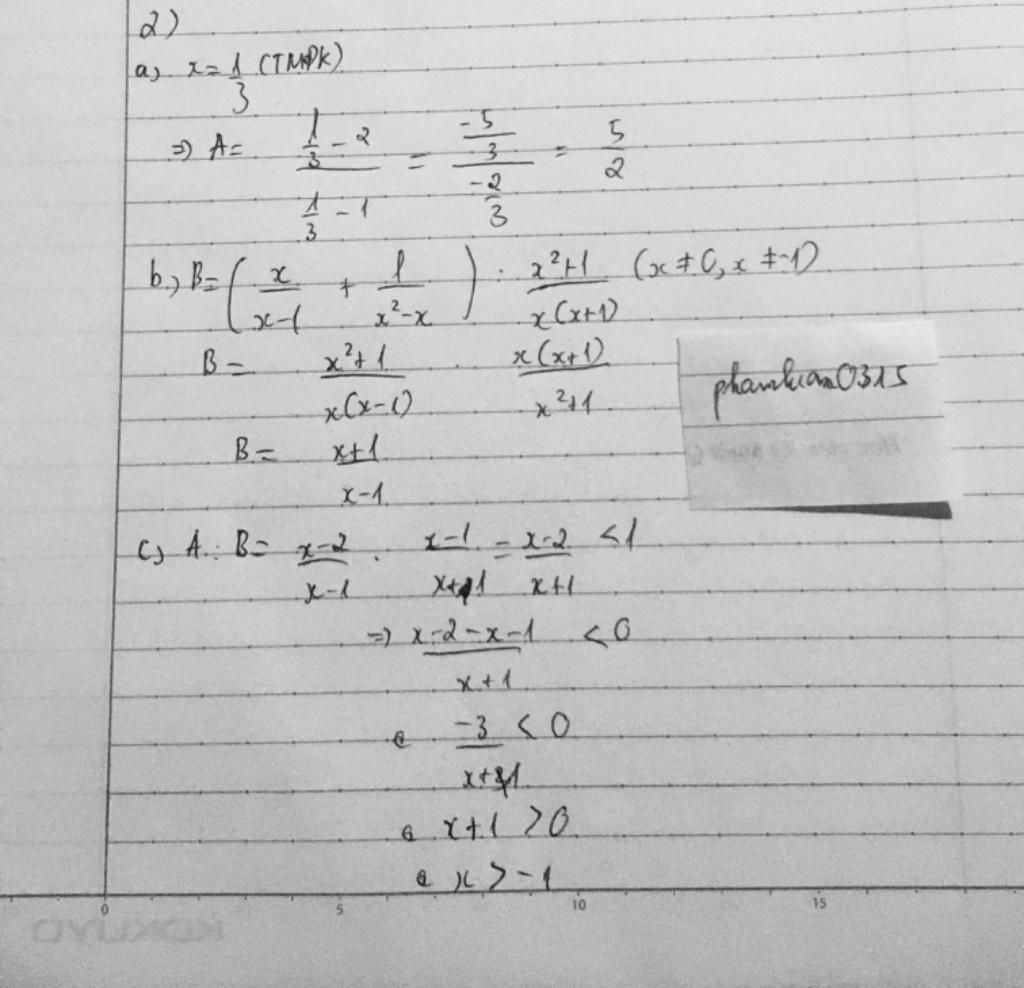 2)
a, x = 1/3 (TMĐK)
=> A = (1/3 - 2)/(1/3 - 1) = (-5/3)/(-2/3) = 5/2
b,) B = (x/(x-1) + 1/(x²-x)) : (x²+1)/(x(x+1)) (x ≠ 0, x ≠ -1)
B = (x²+1)/(x(x-1)) . (x(x+1))/(x²+1)
phamhuan0315
B = (x+1)/(x-1)
c, A : B = (x-2)/(x-1) . (x-1)/(x+1) = (x-2)/(x+1) < 1
=> (x-2-x-1)/(x+1) < 0
-3/(x+1) < 0
x+1 > 0
x > -1
0 5 10 15
KOKUYO